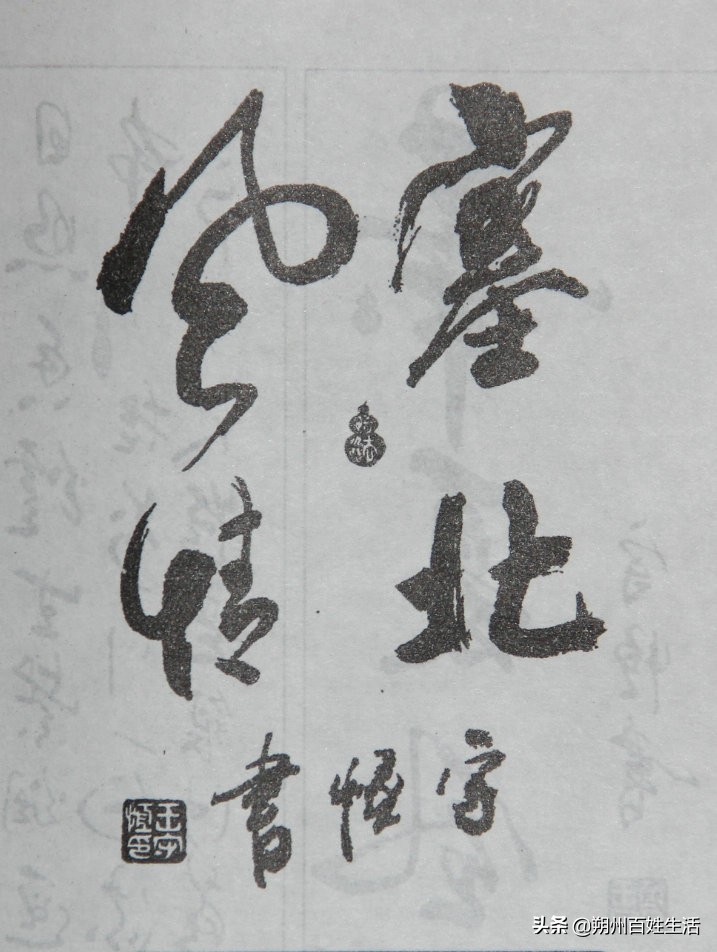 塞北
风情
恒書
头条 @朔州百姓生活